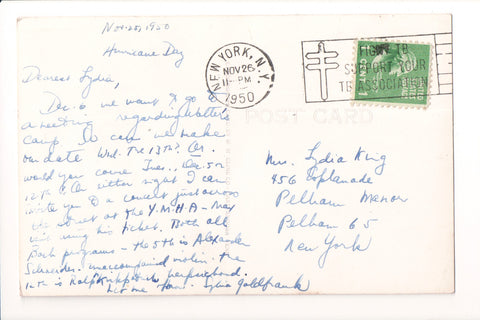 Nov 25, 1950
Hurricane Day
Dearest Lydia,
Dec. 6 we want to go to
a meeting regarding
Camp so can we make
our date Wed. the 13th? Or
would you come Tues., Dec. 5 or
12th & On either night I can
invite you to a concert just across
the street at the Y.M.H.A - Max
isn't using his ticket. Both all
Bach programs - the 5th is Alexander
Schneider - unaccompanied violin. the
12th is Ralph Kirkpatrick harpsichord.
Let me know. Sylvia Goldfrank
NEW YORK, N.Y.
NOV 26
11 - PM
1950
FIGHT TB
SUPPORT YOUR
TB ASSOCIATION
POST CARD
Mrs. Lydia King
456 Esplanade
Pelham Manor
Pelham 65
New York